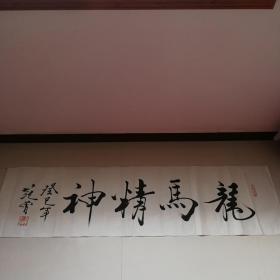 龍馬精神
癸巳年